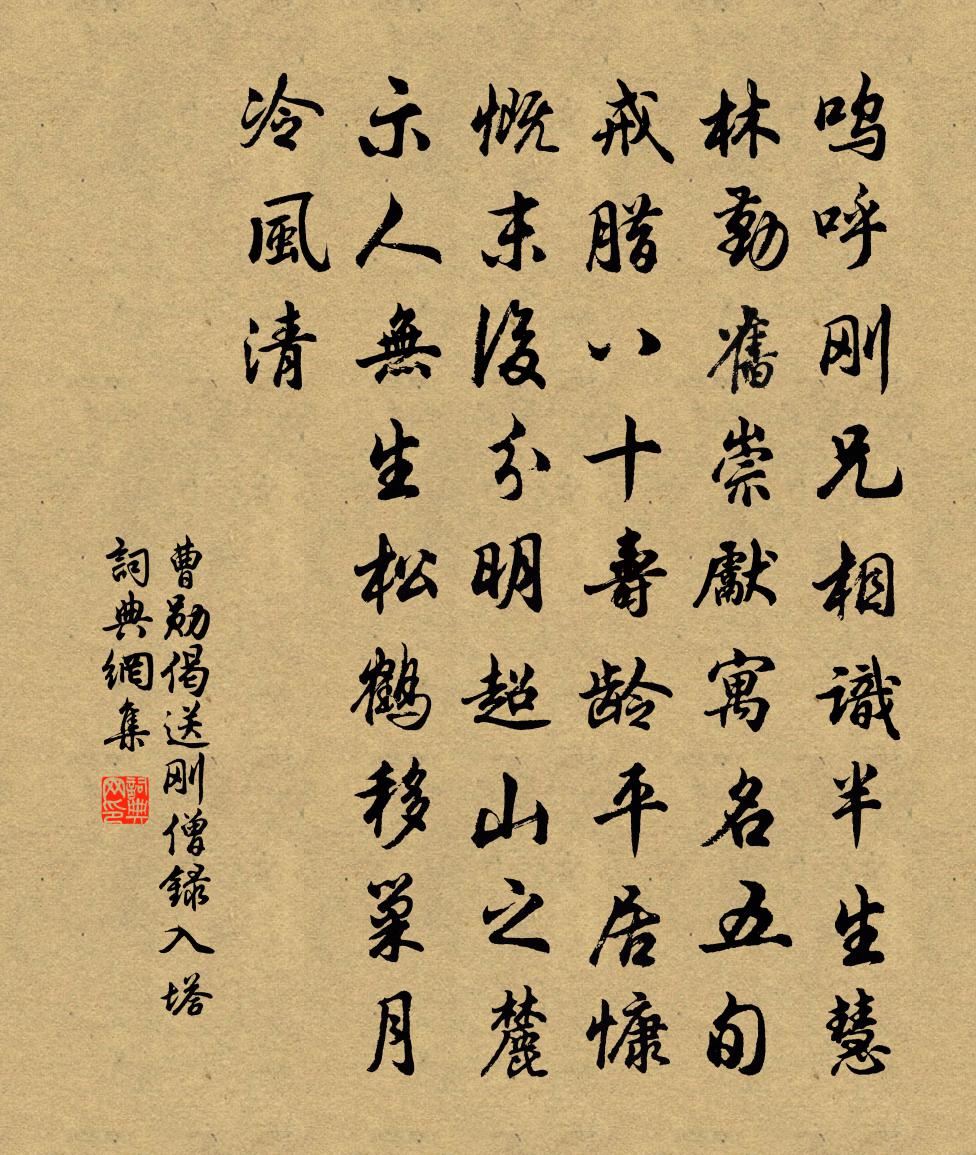 呜呼刚兄相識半生慧
林勤舊崇獻寓名五旬
戒腊八十壽龄平居慷
慨末後分明超山之麓
示人無生松鶴移巢月
冷風清
曹勛偈送刚僧録入塔
詞典網集
詞典网印